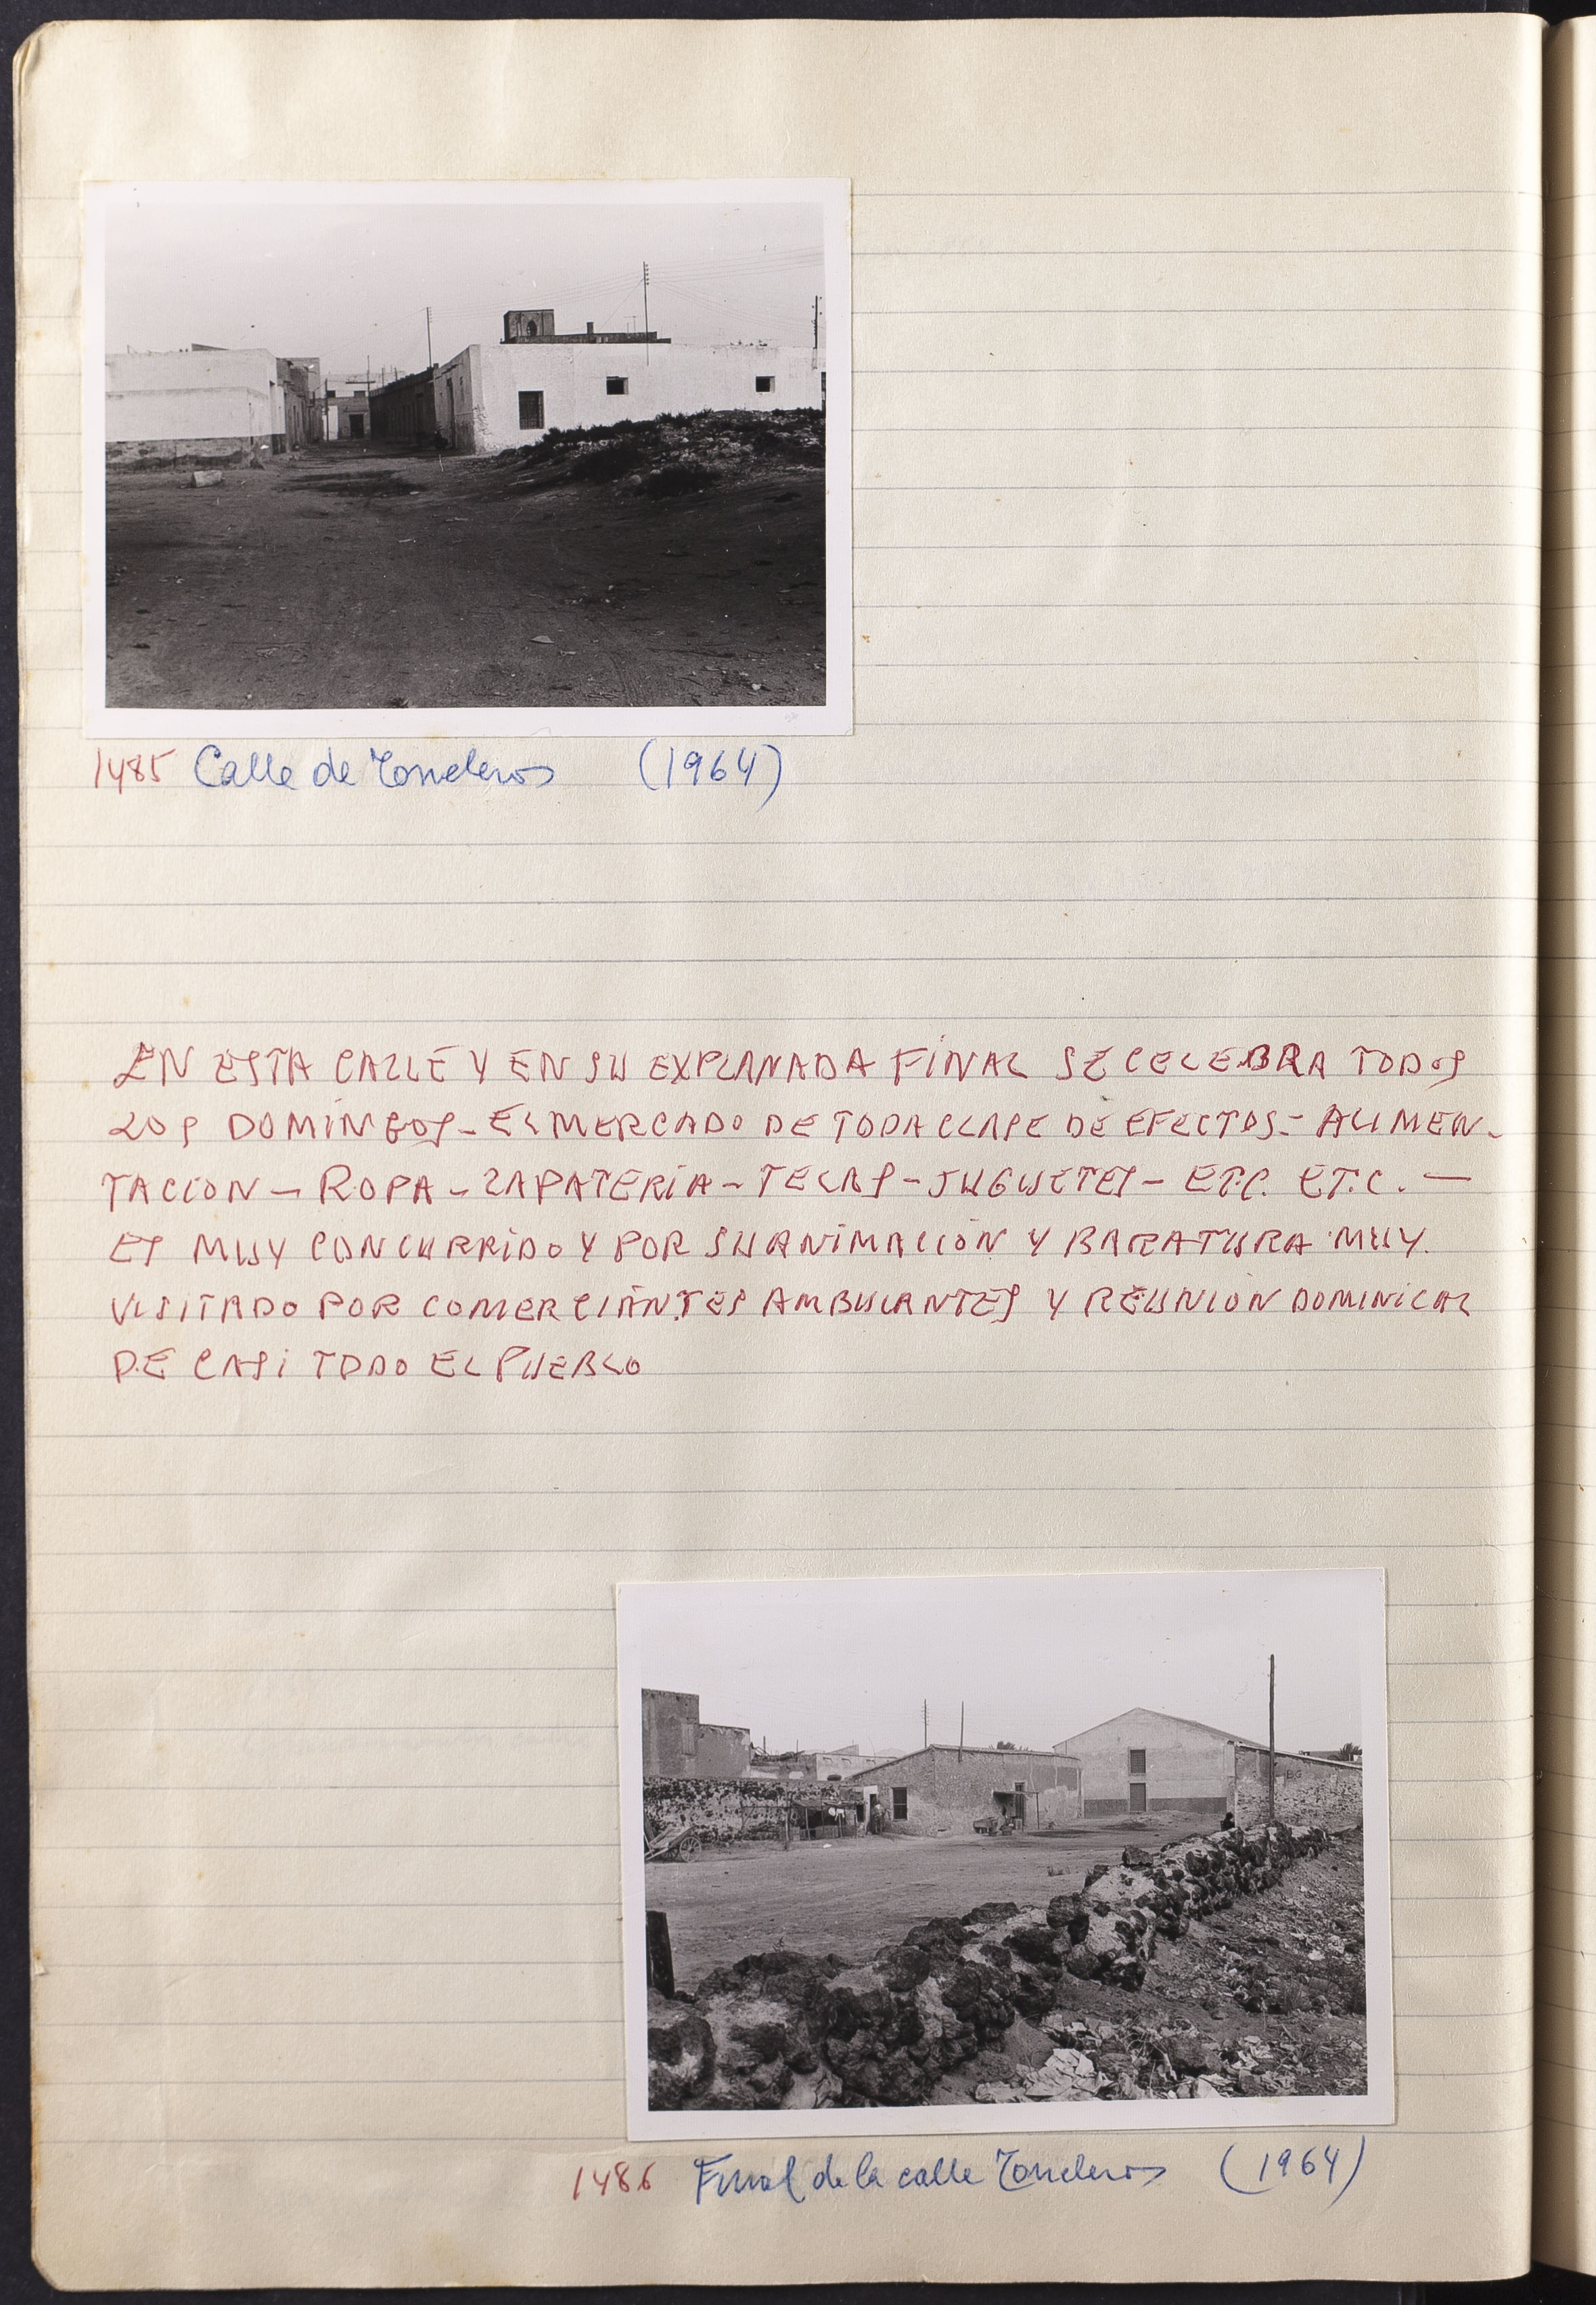 1485 Calle de Toneleros (1964)
EN ESTA CALLE Y EN SU EXPLANADA FINAL SE CELEBRA TODOS
LOS DOMINGOS - EL MERCADO DE TODA CLASE DE EFECTOS - ALIMEN-
TACION - ROPA - ZAPATERÍA - TELAS - JUGUETES - ETC. ET.C. —
ES MUY CONCURRIDO Y POR SU ANIMACION Y BARATURA MUY
VISITADO POR COMERCIANTES AMBULANTES Y REUNION DOMINICAL
DE CASI TODO EL PUEBLO
BG
1486 Final de la calle Toneleros (1964)